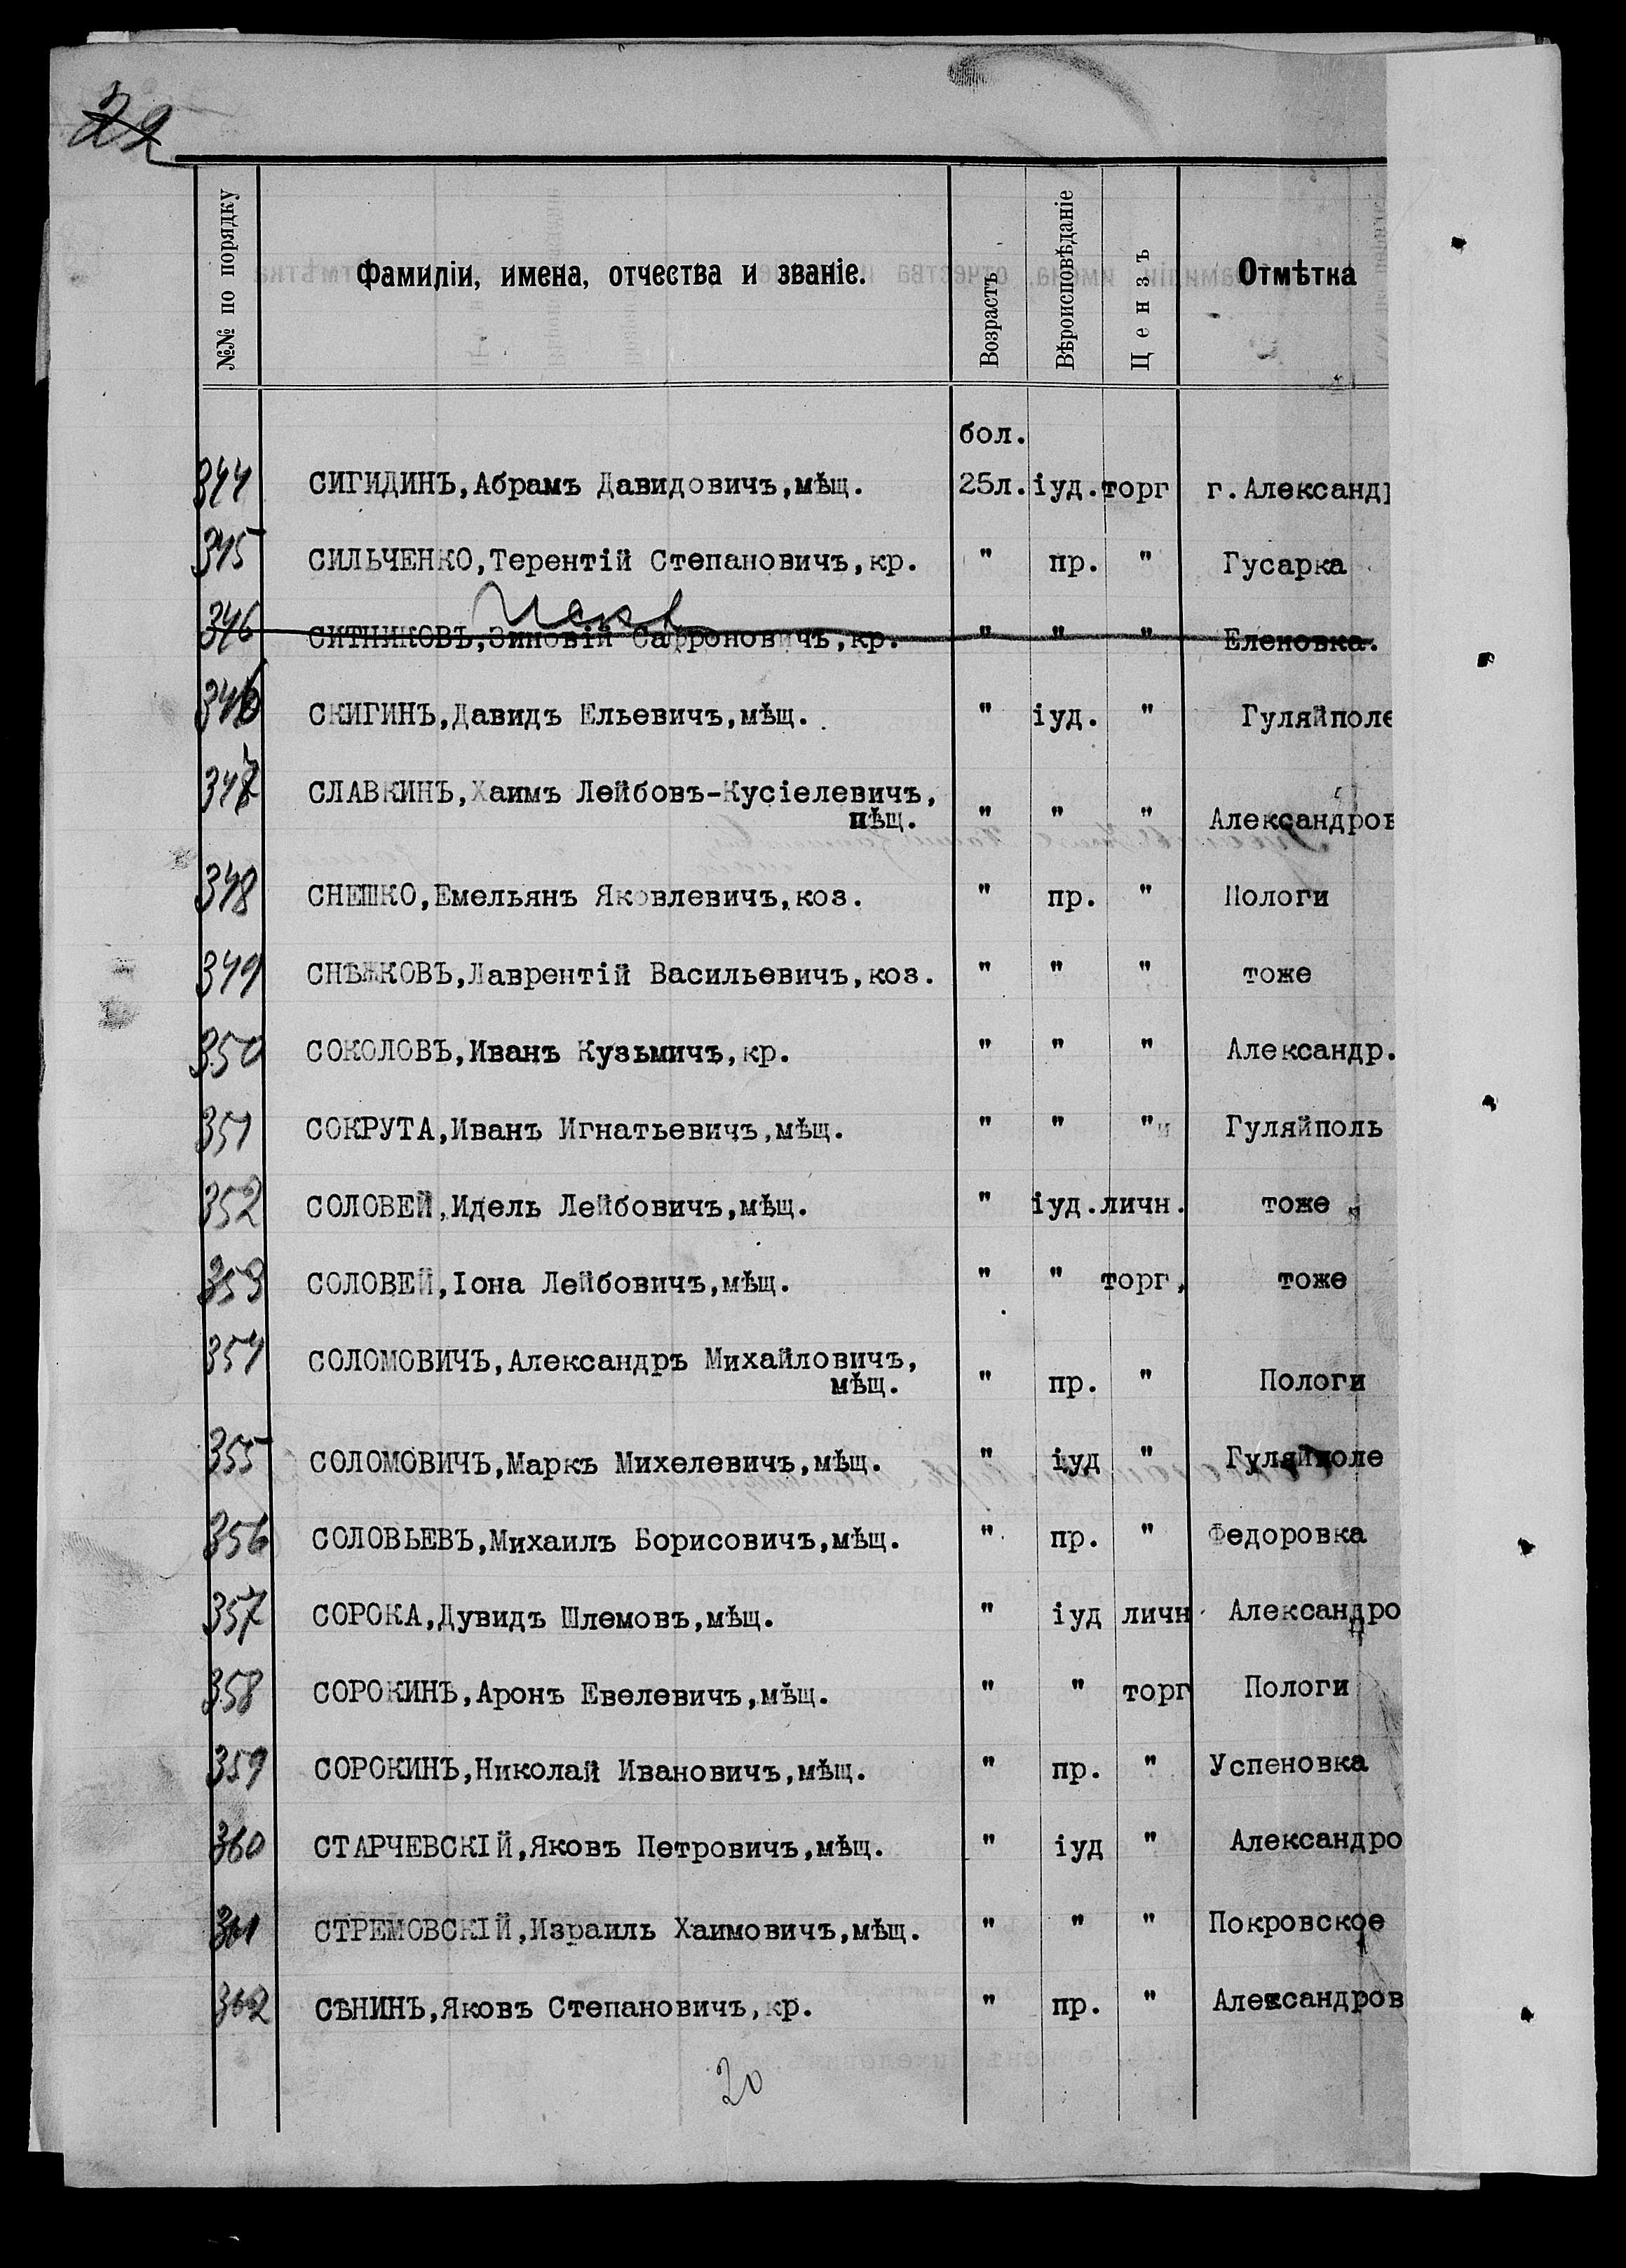 22
№№ по порядку Фамиліи, имена, отчества и званіе. Возрастъ Вѣроисповѣданіе Цензъ Отмѣтка
бол.
344 СИГИДИНЪ,Абрамъ Давидовичъ,мѣщ. 25л. іуд. торг г.Александ
345 СИЛЬЧЕНКО,Терентій Степановичъ,кр. " пр. " Гусарка
346 СИТНИКОВЪ,Зиновій Сафроновичъ,кр. " " " Еленовка.
346 СКИГИНЪ,Давидъ Ельевичъ,мѣщ. " іуд. " Гуляйполе
347 СЛАВКИНЪ,Хаимъ Лейбовъ-Кусіелевичъ,
мѣщ. " " " Александров
348 СНЕШКО,Емельянъ Яковлевичъ,коз. " пр. " Пологи
349 СНѢЖКОВЪ,Лаврентій Васильевичъ,коз. " " " тоже
350 СОКОЛОВЪ,Иванъ Кузьмичъ,кр. " " " Александр.
351 СОКРУТА,Иванъ Игнатьевичъ,мѣщ. " " " Гуляйполь
352 СОЛОВЕЙ,Идель Лейбовичъ,мѣщ. " іуд. личн. тоже
353 СОЛОВЕЙ,Іона Лейбовичъ,мѣщ. " " торг, тоже
354 СОЛОМОВИЧЪ,Александръ Михайловичъ,
мѣщ. " пр. " Пологи
355 СОЛОМОВИЧЪ,Маркъ Михелевичъ,мѣщ. " іуд " Гуляйполе
356 СОЛОВЬЕВЪ,Михаилъ Борисовичъ,мѣщ. " пр. " Федоровка
357 СОРОКА,Дувидъ Шлемовъ,мѣщ. " іуд личн Александро
358 СОРОКИНЪ,Аронъ Евелевичъ,мѣщ. " " торг Пологи
359 СОРОКИНЪ,Николай Ивановичъ,мѣщ. " пр. " Успеновка
360 СТАРЧЕВСКІЙ,Яковъ Петровичъ,мѣщ. " іуд " Александро
361 СТРЕМОВСКІЙ,Израиль Хаимовичъ,мѣщ. " " " Покровское
362 СѢНИНЪ,Яковъ Степановичъ,кр. " пр. " Александров
20